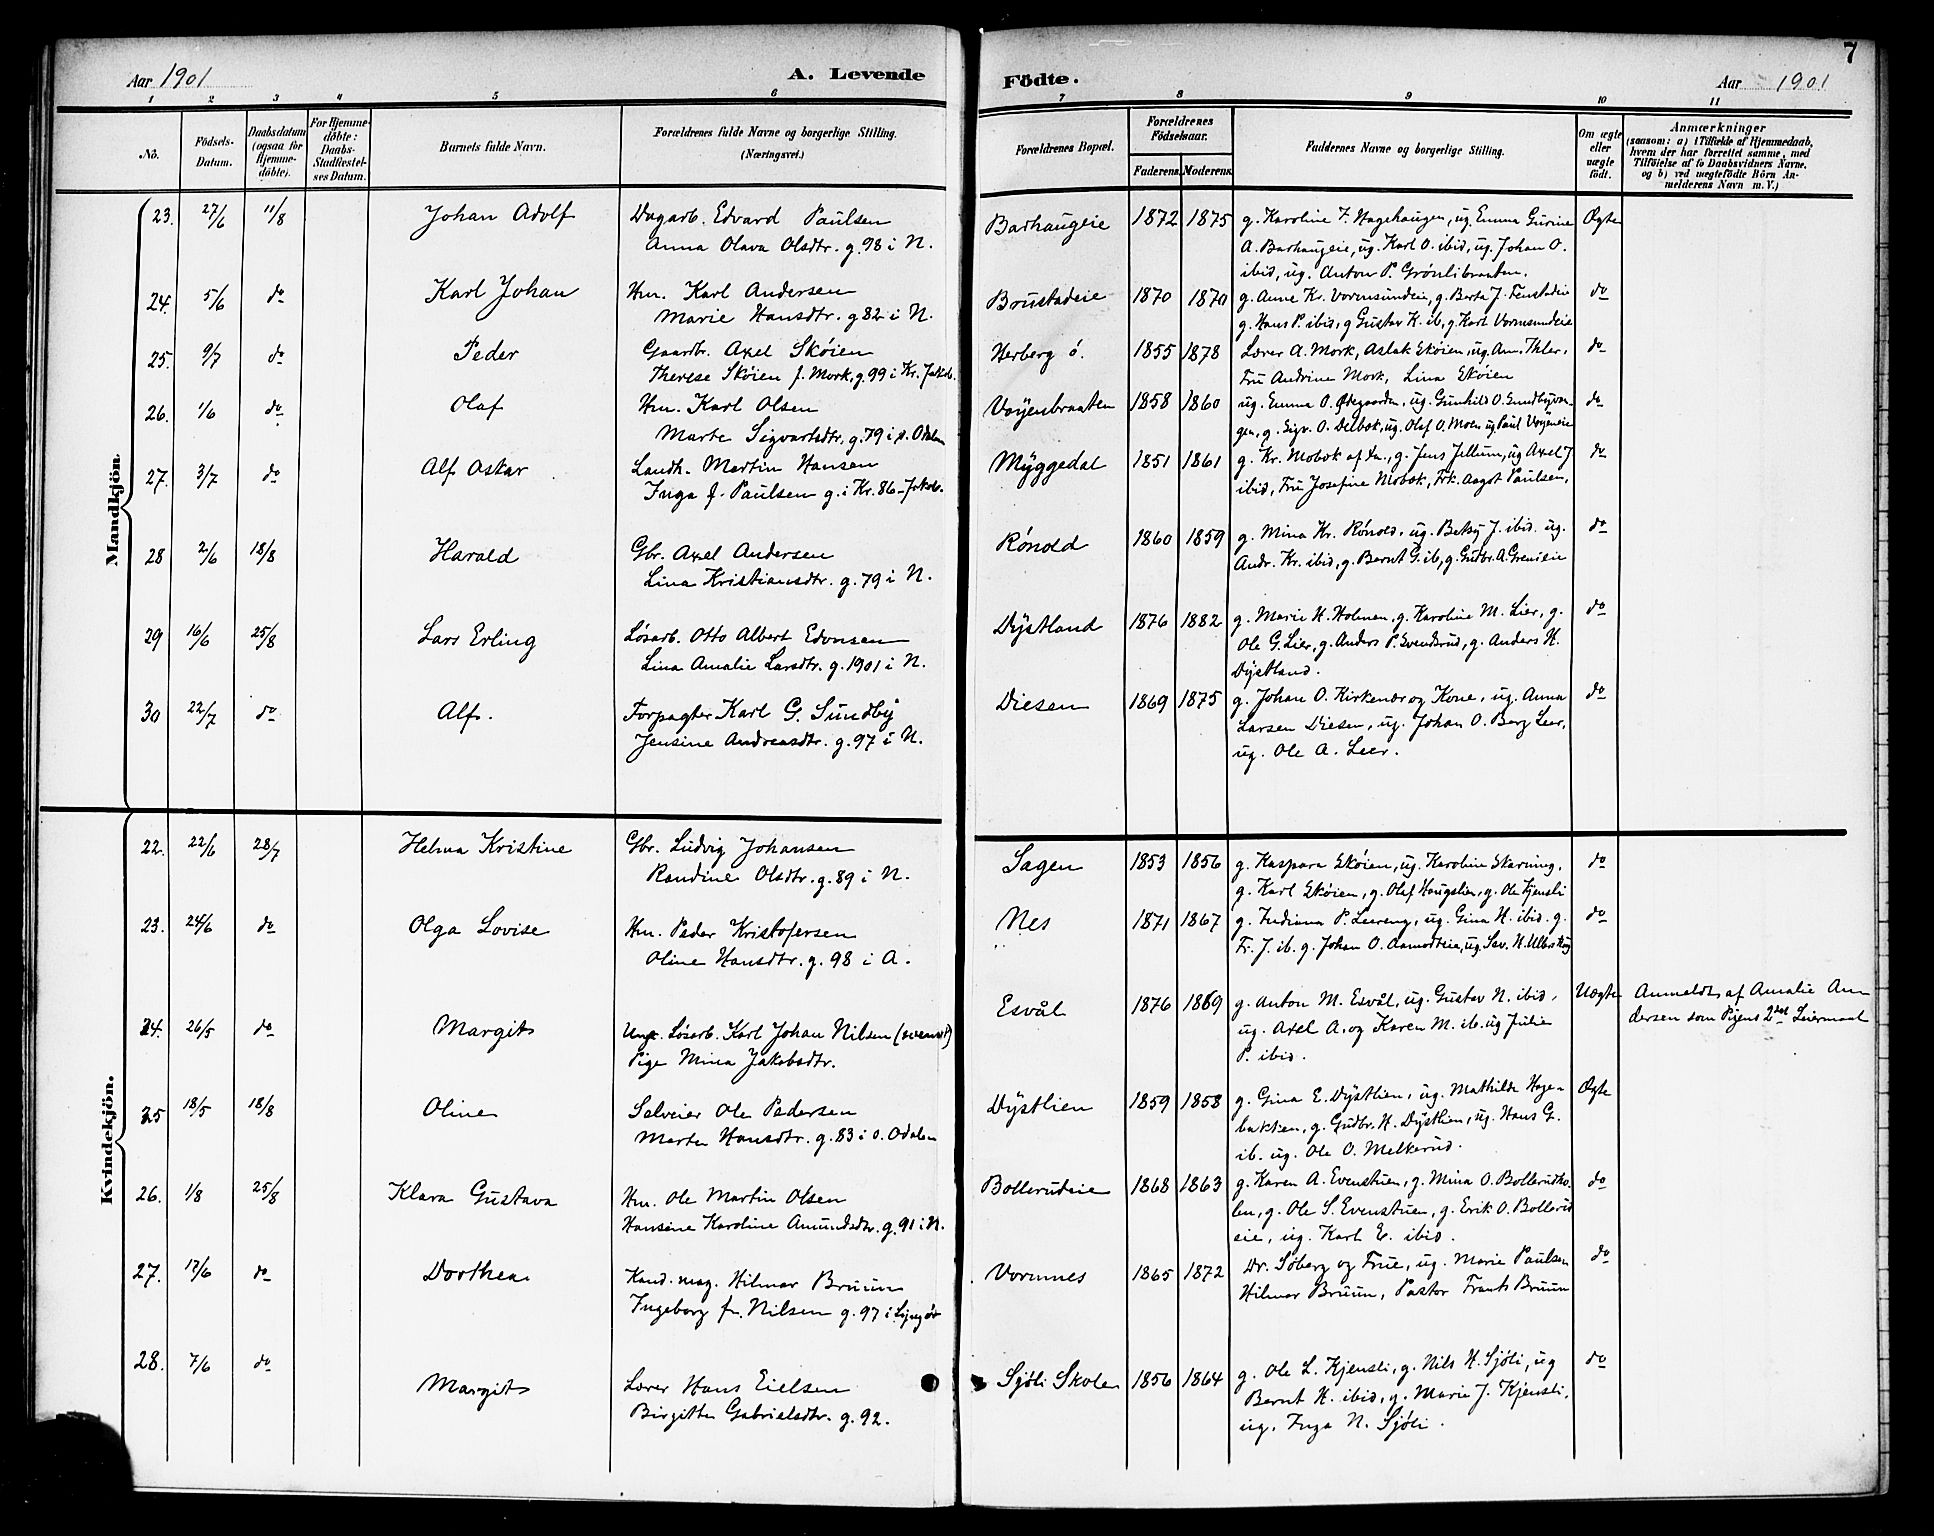 7
Aar 1901 A. Levende Fødte. Aar 1901
1 2 3 4 5 6 7 8 9 10 11
No.
Födsels-Datum.
Daabsdatum (ogsaa for Hjemme-döbte).
For Hjemme-döbte: Daabs-Stadfæstel-ses Datum.
Barnets fulde Navn.
Forældrenes fulde Navne og borgerlige Stilling. (Næringsvei.)
Forældrenes Bopæl.
Forældrenes Födselsaar.
Faderens. Moderens.
Faddernes Navne og borgerlige Stilling.
Om ægte eller uægte födt.
Anmærkninger
(saasom: a) i Tilfælde af Hjemmedaab, hvem der har forrettet samme, med Tilföielse af to Daabsvidners Navne, og b) ved uægtefödte Börn An-melderens Navn m. V.)
Mandkjön
23. 27/6 11/8 Johan Adolf Dagarb. Edvard Paulsen Barhaugeie 1872 1875 g. Karoline T. Hagehaugen, ug. Emma Gurine Ægte
Anna Olava Olsdtr. g. 98 i N. A. Barhaugeie, ug. Karl O. ibid, ug. Johan O.
ibid, ug. Anton P. Grönlibraaten.
24. 5/6 do Karl Johan Hm. Karl Andersen Brustadeie 1870 1870 g. Anne Kr. Vormsundeie, g. Berta J. Fenstadeie do
Marie Hansdtr. g 82 i N. g. Hans P. ibid, g Gustav K. ib, g. Karl Vormsundeie
25. 9/7 do Peder Gaardbr. Axel Skøien Herberg ö. 1855 1878 Lærer A. Mork, Aslak Skøien, ug. Ann. Thler, do
Therese Skøien f. Mork, g. 99 i Kr. Jakob. Fru Andrine Mork, Lina Skøien
26. 1/6 do Olaf Hm. Karl Olsen Vøyenbraaten 1858 1860 ug. Emma O. Ødegaarden, ug. Gunhild O. Sundbyvan- do
Marte Sigvartsdtr, g. 79 i s. Odalen gen, g. Sigv. O. Delbak, ug. Olaf O. Moen ug Paul Vøyeneie
27. 3/7 do Alf Oskar Landh. Martin Hansen Myggedal 1851 1861 g. Kr. Mobæk af Da., g. Jens Jellum, ug Axel J do
Inga f. Paulsen g. i Kr. 86 - Jakob. ibid, Fru Josefine Mobæk, Frk. Aagot Paulsen,
28 2/6 18/8 Harald Gbr. Axel Andersen Rónold 1860 1859 g. Mina Kr. Rónold, ug. Betsy J. ibid. ug. do
Lina Kristiansdtr. g. 79 i N. Andr. Kr. ibid, g. Bernt G. ib, g. Gudbr. A. Grenieie
29 16/6 25/8 Lars Erling Løsarb. Otto Albert Edvnsen Dystland 1876 1882 g. Marie H. Holmen, g. Karoline M. Lier, g. do
Lina Amalie Larsdtr. g. 1901 i N. Ole G. Lier, g. Anders P. Svendsrud, g. Anders H.
Dystland.
30 22/7 do Alf. Forpagter Karl G. Sundby Diesen 1869 1875 g. Johan O. Kirkenær og Kone, ug. Anna do
Jensine Andreasdtr. g. 97 i N. Larsen Diesen, ug. Johan O. Berg Leer,
ug. Ole A. Leer.
Kvindekjön.
22. 22/6 28/7 Helma Kristine Gbr. Ludvig Johansen Sagen 1853 1856 g. Kaspara Skøien, ug. Karoline Skarning, do
Randine Olsdtr. g. 89 i N. g. Karl Skøien, g. Olaf Haugslien, g. Ole Kjensli
23. 24/6 do Olga Lovise Hm. Peder Kristofersen Nes 1871 1867 g. Indiana P. Leereng, ug. Gina H. ibid. g. do
Oline Hansdtr. g. 98 i A. Fr. J. ib. g. Johan O. Aamodteie, ug. Sev. H. Ulleskog
24. 26/5 do Margit Ungk. Løsarb. Karl Johan Nilsen (svensk) Esvål 1876 1869 g. Anton M. Esvål, ug. Gustav N. ibid, Uægte Anmeldt af Amalie An
Pige Mina Jakobsdtr. ug. Axel A. og Karen M. ib. ug Julie dersen som Pigens 2det Leiermaal
P. ibid.
25 18/5 18/8 Oline Selveier Ole Pedersen Dystlien 1859 1858 g. Gina E. Dystlien, ug. Mathilde Hage- Ægte
Marte Hansdtr. g. 83 i s. Odalen bakken, g. Gudbr. H. Dystlien, ug. Hans G.
ib. ug. Ole O. Melkerud.
26. 1/8 25/8 Klara Gustava Hm. Ole Martin Olsen Bollerudeie 1868 1863 g. Karen A. Evenstuen, g. Mina O. Bollerudho- do
Hansine Karoline Amundsdtr. g. 91 i N. len, g. Ole S. Evenstuen, g. Erik O. Bollerud
eie, ug. Karl E. ibid.
27. 13/6 do Dorthea Kand. mag. Hilmar Bruun Vormnes 1865 1872 Dr. Söberg og Frue, ug. Marie Paulsen do
Ingeborg f. Nilsen g. 97 i Lyngör Hilmar Bruun, Pastor Frants Bruun
28. 7/6 do Margit Lærer Hans Eielsen Sjöli Skole 1856 1864 g. Ole L. Kjensli, g. Nils H. Sjöli, ug do
Birgitte Gabrielsdtr. g. 92. Bernt H. ibid, g. Marie J. Kjensli,
ug. Inga N. Sjöli.